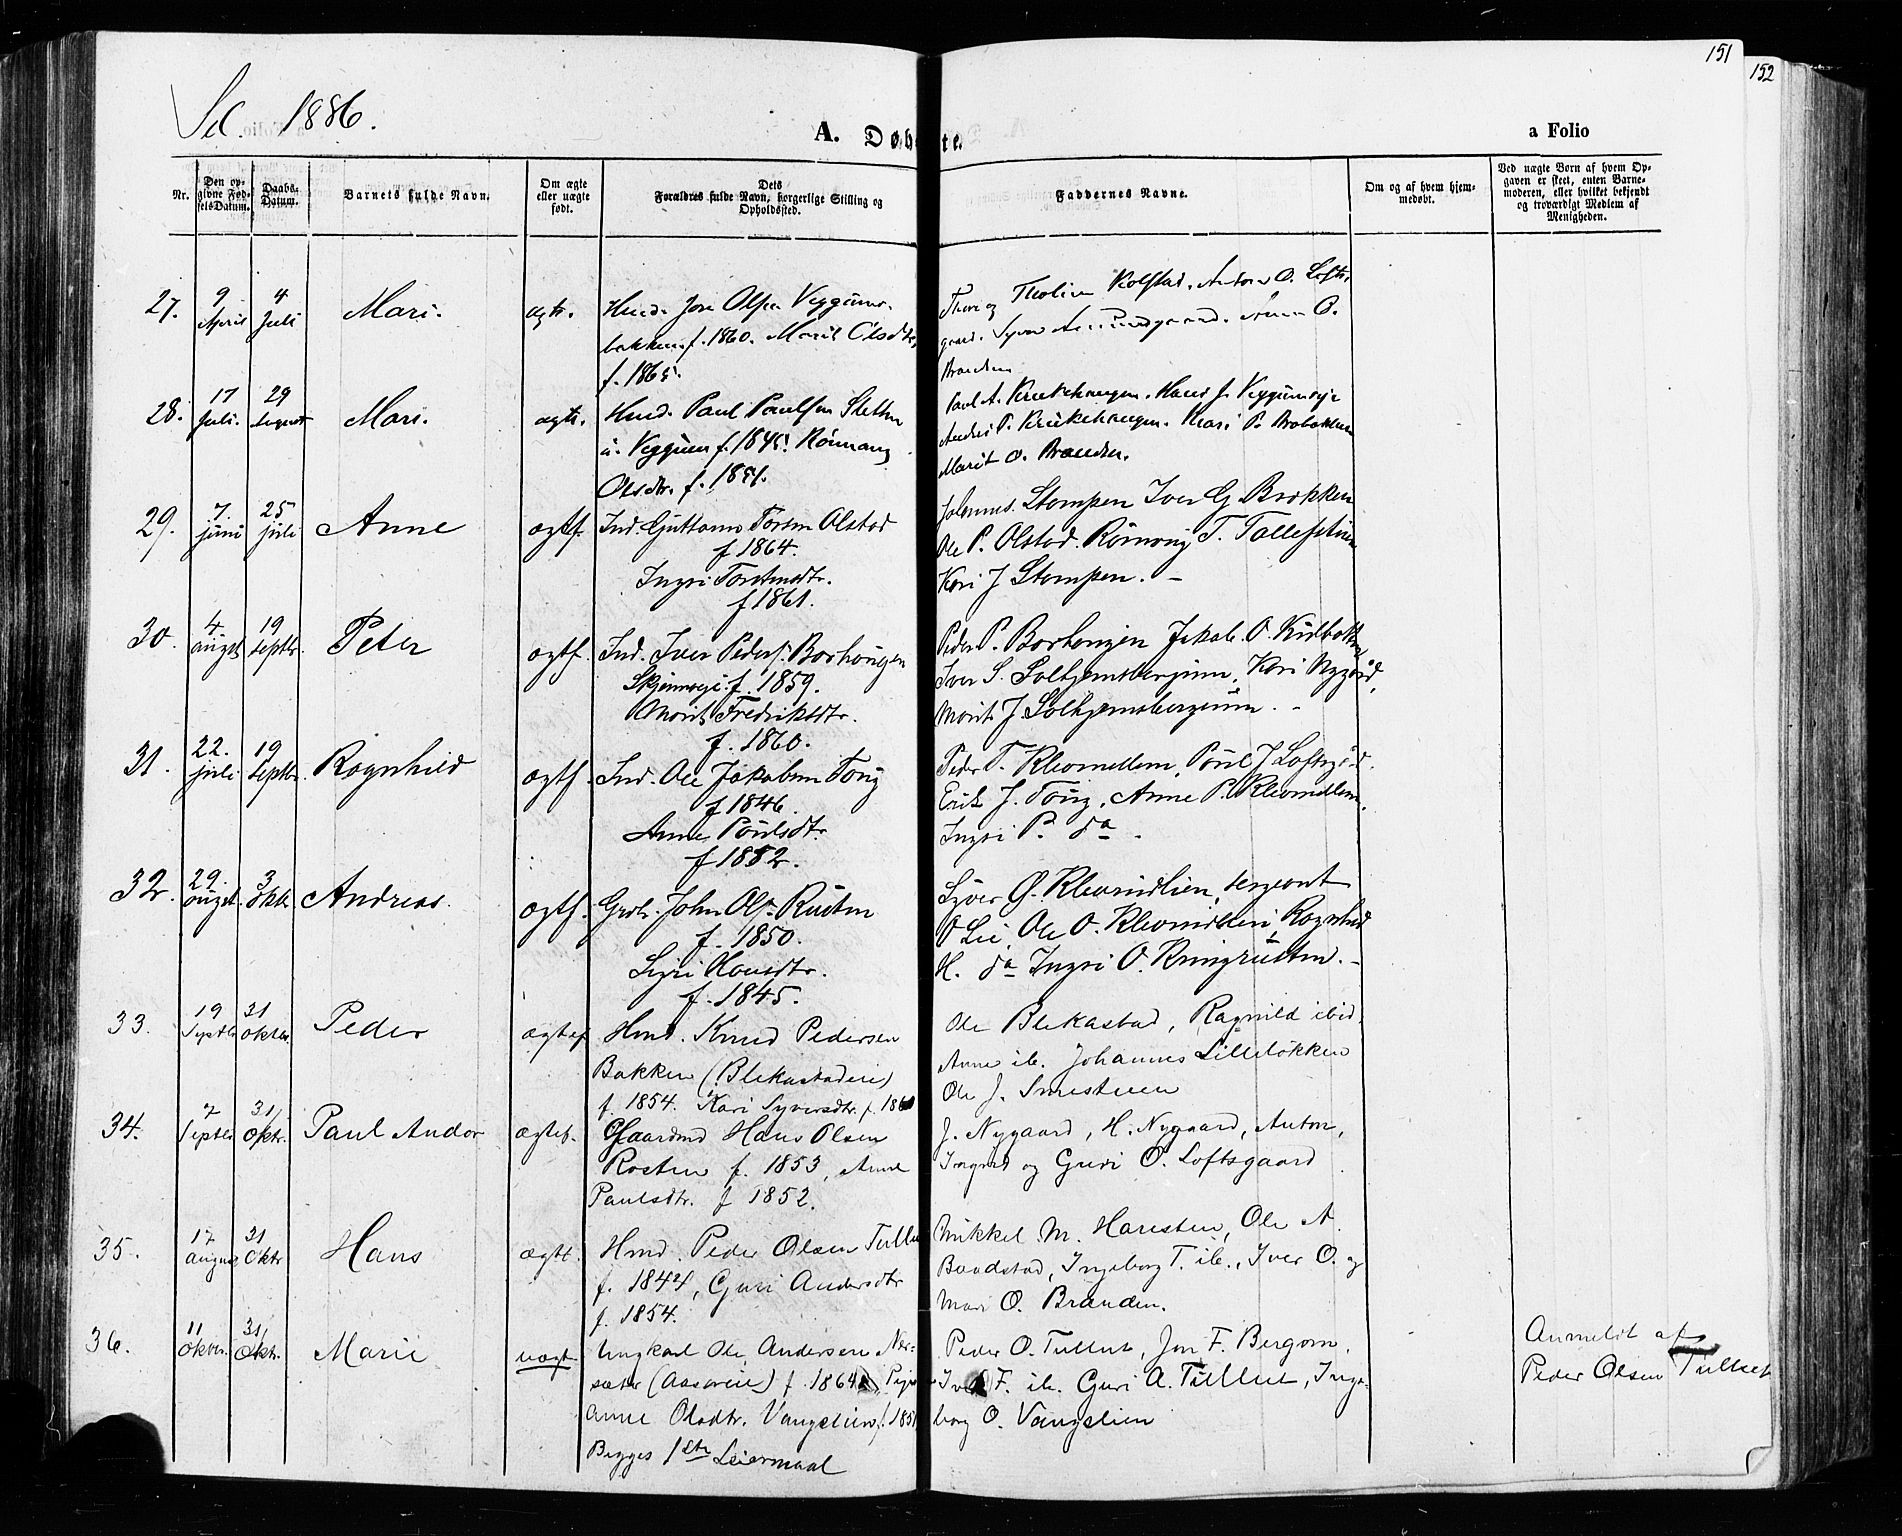 151
152
Sel. 1886.
A. Døbte.
a Folio
Nr.
Den opgivne FødselsDatum.
Daabs-Datum.
Barnets fulde Navn.
Om ægte eller uægte født.
Dets Forældres fulde Navn, borgerlige Stilling og Opholdssted.
Faddernes Navne.
Om og af hvem hjemmedøbt.
Ved uægte Børn af hvem Opgaven er skeet, enten Barnemoderen, eller hvilket bekjendt og troværdigt Medlem af Menigheden.
27. 9 April 4 Juli Mari. ægte.
Husm. Jon Olsen Veggums-
bakken f. 1860. Marit Olsdtr,
f. 1865.
Thore og Tholine Kolstad, Anton O. Lofts-
gaard. Syver
Branden
28. 17 Juli. 29 August Mari. ægte.
Husm. Paul Paulsen Sletten
u. Veggum f. 1845. Rønnaug
Olsdtr. f. 1851.
Paul A. Krukehaugen. Hans J. Veggumseje
Anders P. Krukehaugen. Kari P. Brobakken
Marit O. Branden.
29. 7. juni 25 juli Anne ægtf.
Ind. Guttorm Torsten Olstad
f 1864.
Ingri Torstensdtr.
f 1861.
Johannes Stampen Iver G Brækken
Ole P. Olstad. Rønnaug T. Tollefstuen
Kari J Stampen. –
30. 4. august 19 septbr. Peter ægtf.
Ind. Iver Peders. Borhaugen
Skjenneje. f. 1859.
Marit Fredriksdtr.
f. 1860.
Peder P. Borhaugen Jakob O.
Iver S. Solhjemsbergeun, Kari Nygård,
Marit J. Solhjemsbergeun. –
31. 22. juli 19 septbr. Ragnhild ægtf.
Ind. Ole Jakobsen Toug
f 1846.
Anne Poulsdtr.
f 1852.
Peder T. Kleomellem, Poul J Loftsgård.
Erik J. Toug, Anne P. Kleomellem,
Ingri P. da.
32. 29. augst. 3 oktbr Andreas. ægtf.
Grdbr. John Ols. Rusten
f. 1850.
Sigri Hansdtr.
f. 1845.
Syver G. Kleomdlien, sergeant
O Lie, Ole O. Kleomdlien, Ragnhild
H. da Ingri O. Ringrusten. –
33. 19 Septbr 31 oktbr. Peder ægtef
Hmd. Knud Pedersen
Bakken (Blekastadeie)
f. 1854. Kari Syversdtr. f. 1860
Ole Blekastad, Ragnild ibid.
Anne ib. Johannes Lilleløkken
Ole J. Smestuen
34. 7 Septbr 31 Oktr. Paul Andor ægtef.
Gaardmd Hans Olsen
Rosten f. 1853, Anne
Paulsdtr. f 1852.
J. Nygaard, H. Nygaard, Anton,
Ingrid og Guri O. Loftsgaard
35. 17 August 31 Oktr Hans ægtf.
Hmd. Peder Olsen Tullut
f. 1844, Guri Andersdtr
f. 1854.
Mikkel M. Haresten, Ole A.
Baadstad, Ingeborg T. ib., Iver O. og
Mari O. Branden.
36. 11 Oktbr. 31 Oktr. Marie uægte
Ungkarl Ole Andersen Nor-
sæter (Aasoreie) f. 1864, Pige
Anne Olsdtr. Vangslien f. 1851
Begges 1ste Leiermaal
Peder O. Tullut, Jon F. Bergom,
Iver F. ib. Guri A. Tullut, Inge-
borg O. Vangslien
Anmeldt af
Peder Olsen Tullut